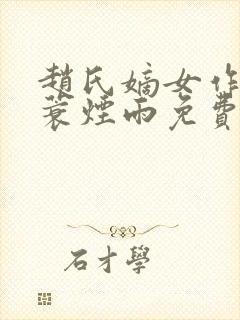 趙氏嫡女作
蓑煙雨免費
石才學